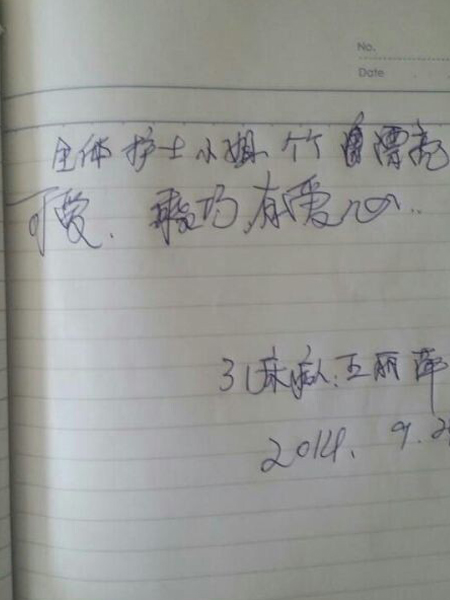 No.
Date
全体护士小姐 个个漂亮
可爱. 灵巧,有爱心..
31床病人:王丽萍
2014. 9. 2